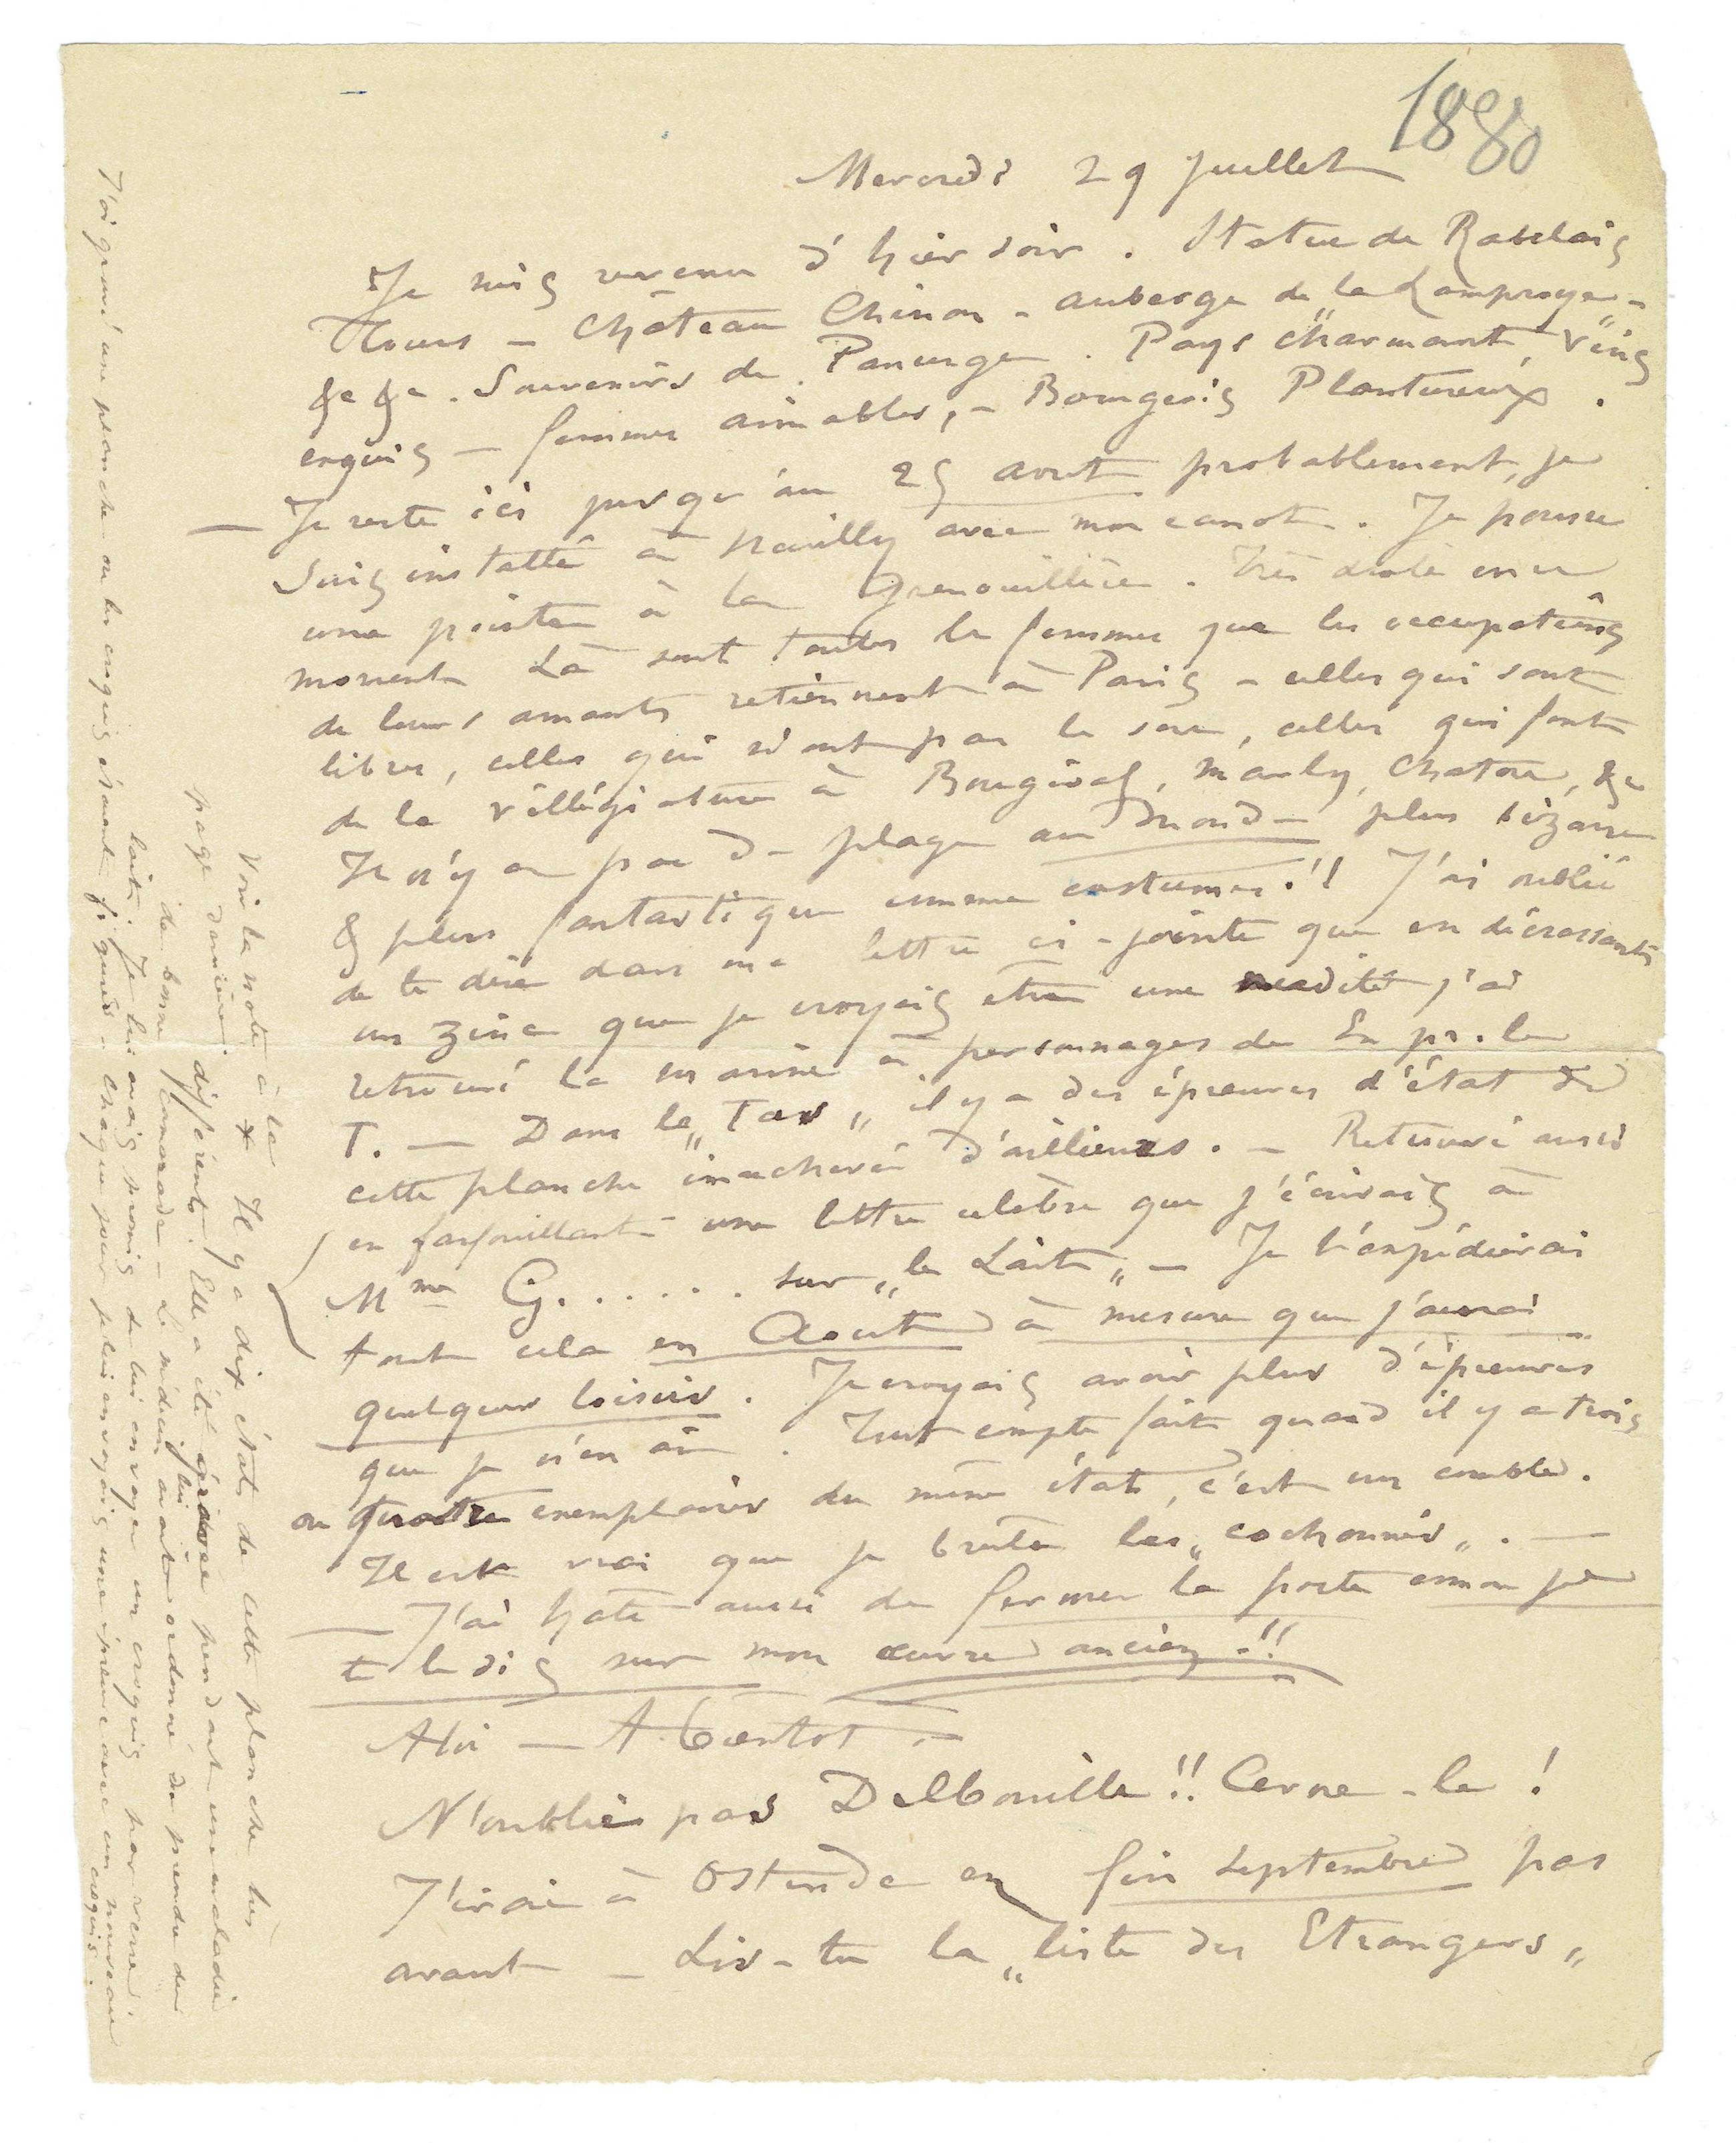 1880
Mercredi 29 Juillet
Je suis revenu d'hier soir. Statue de Rabelais
Tours – Château Chinon – auberge de "la Lamproye" –
&c &c. Souvenirs de Panurge. Pays charmant, vins
exquis – femmes aimables, – Bourgeois Plantureux.
– Je reste ici jusqu'au 25 aout probablement, je
suis installé à Neuilly avec mon canot. Je pousse
une pointe à la Grenouillière. Très drole en ce
moment Là sont toutes les femmes que les occupations
de leurs amants retiennent à Paris – celles qui sont
libres, celles qui n'ont pas le sou, celles qui font
de la villégiature à Bougival, Marly, Chatou, &c
Il n'y a pas de plage au monde plus bizarre
& plus fantastique comme costumes!! J'ai oublié
de te dire dans ma lettre ci-jointe que en décrassant
un zinc que je croyais être une nudité j'ai
retrouvé la marine à personnages de En pr. la
T. – Dans le "Tas" il y a des épreuves d'état de
cette planche inachevée d'ailleurs. – Retrouvé aussi
en farfouillant une lettre celèbre que j'écrivais à
Mme G...... sur "le Lait" – Je t'expédierai
tout cela en Aout à mesure que j'aurai
quelques loisirs. Je croyais avoir plus d'épreuves
que je n'en ai. Tout compte fait quand il y a trois
ou quatre exemplaires du même état, c'est un comble.
Il est vrai que je brûle les "cochonnés". –
– J'ai hâte aussi de fermer la porte comme je
te le dis sur mon œuvre ancien –!!
A toi – A bientot –
N'oublie pas Delbouille!! Cerne-le!
J'irai à Ostende en fin septembre pas
avant – Lis-tu la "liste des Etrangers"
Voir la note à la
page dernière * Il y a dix états de cette planche très
différents. Elle a été gravée pendant une maladie
de bonne camarade – Le médecin lui avait ordonné de prendre du
lait. Je lui avais promis de lui envoyer un croquis par verre.
J'ai gravé une planche ou les croquis étaient figurés – chaque jour je lui envoyais une épreuve avec un nouveau
croquis.